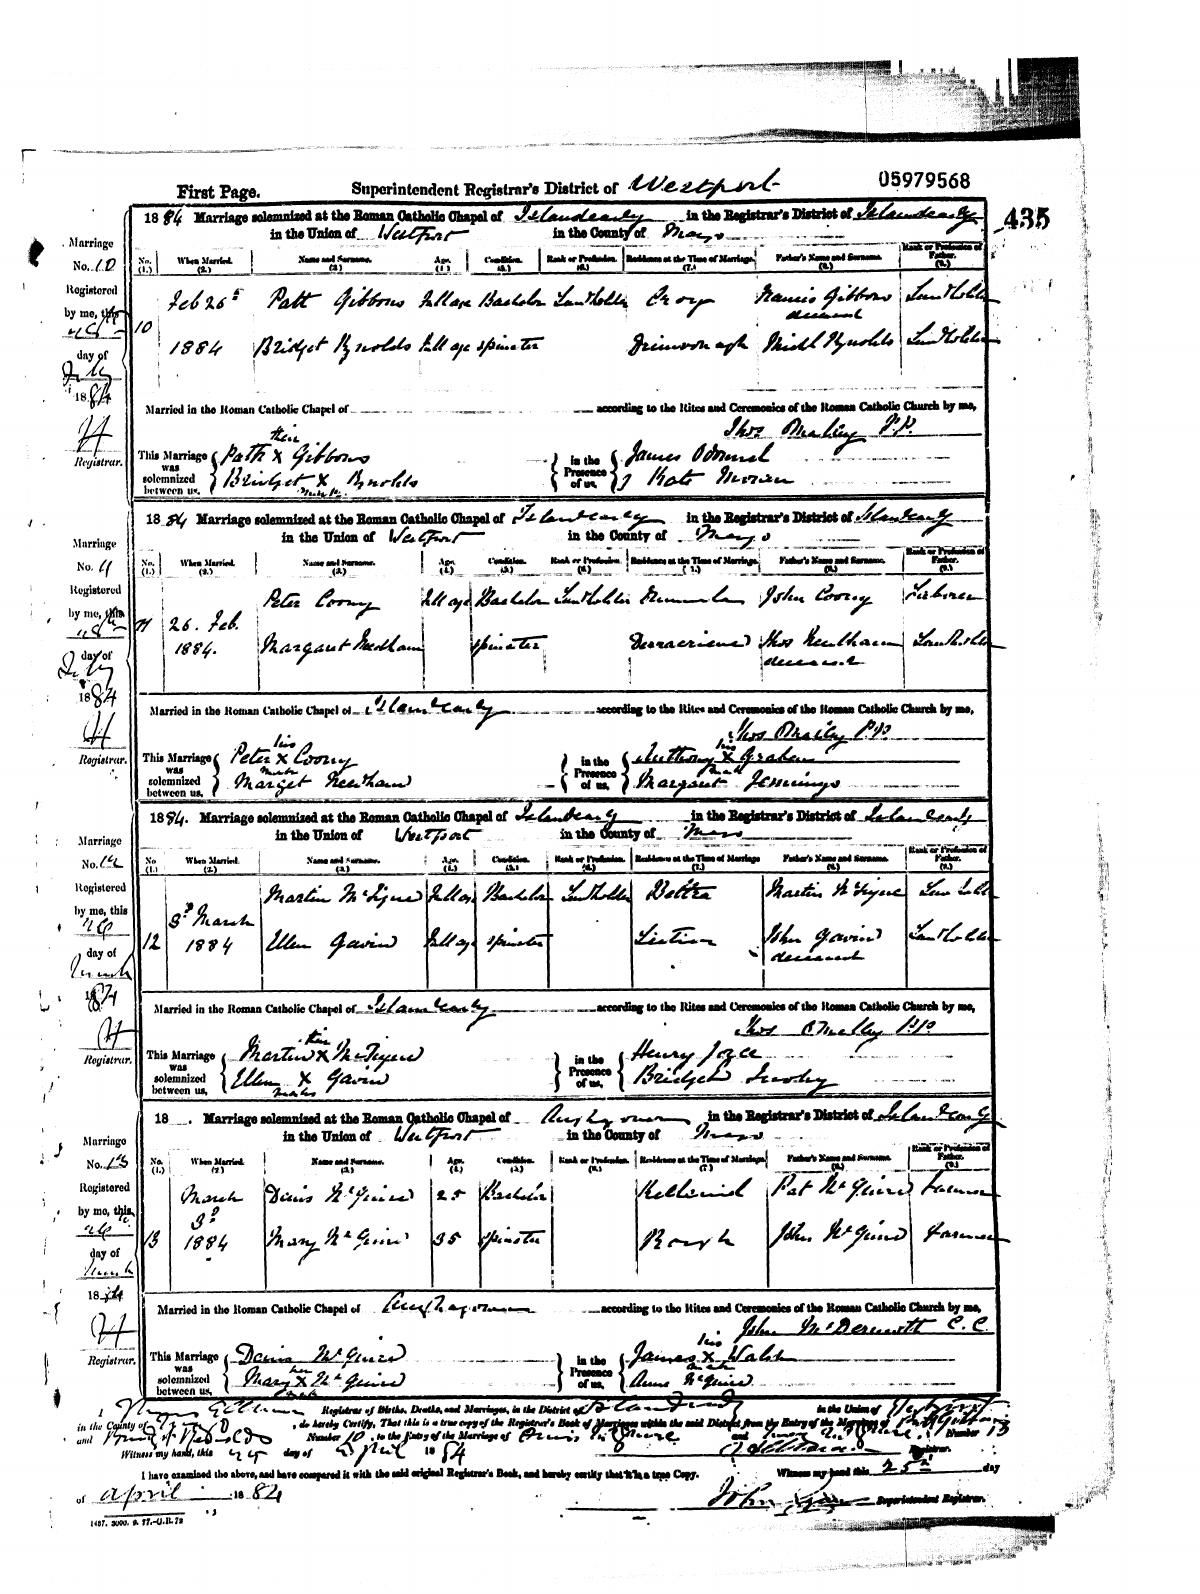 First Page. Superintendent Registrar's District of Westport 05979568
435
1884 Marriage solemnized at the Roman Catholic Chapel of Islandeady in the Registrar's District of Islandeady
in the Union of Westport in the County of Mayo
Marriage No. 10
No. (1.) When Married. (2.) Name and Surname. (3.) Age. (4.) Condition. (5.) Rank or Profession. (6.) Residence at the Time of Marriage. (7.) Father's Name and Surname. (8.) Rank or Profession of Father. (9.)
Registered by me, this
day of July
1884
H
Registrar.
10 Feb 26th Patt Gibbons full age Bachelor Landholder Croy Francis Gibbons deceased Landholder
1884 Bridget Rynolds full age spinster Drimvonagh Michl Rynolds Landholder
Married in the Roman Catholic Chapel of according to the Rites and Ceremonies of the Roman Catholic Church by me,
Thos Omalley P.P.
This Marriage was solemnized between us, Patt X Gibbons their
Bridget X Rynolds marks
in the Presence of us, James Odonnel
Kate Moran
1884 Marriage solemnized at the Roman Catholic Chapel of Islandeady in the Registrar's District of Islandeady
in the Union of Westport in the County of Mayo
Marriage No. 11
No. (1.) When Married. (2.) Name and Surname. (3.) Age. (4.) Condition. (5.) Rank or Profession. (6.) Residence at the Time of Marriage. (7.) Father's Name and Surname. (8.) Rank or Profession of Father. (9.)
Registered by me, this
day of July
1884
H
Registrar.
11 26. Feb. Peter Coony full age Bachelor Landholder John Coony Laborer
1884. Margaret Needham spinster Thos Needham deceased Landholder
Married in the Roman Catholic Chapel of Islandeady according to the Rites and Ceremonies of the Roman Catholic Church by me,
Thos Omalley P.P.
This Marriage was solemnized between us, Peter X Coony his mark
Marget Needham
in the Presence of us, Anthony X Graham his mark
Margaret Jennings
1884. Marriage solemnized at the Roman Catholic Chapel of Islandeady in the Registrar's District of Islandeady
in the Union of Westport in the County of Mayo
Marriage No. 12
No (1.) When Married. (2.) Name and Surname. (3.) Age. (4.) Condition. (5.) Rank or Profession. (6.) Residence at the Time of Marriage (7.) Father's Name and Surname. (8.) Rank or Profession of Father. (9.)
Registered by me, this 26
day of March
1884
H
Registrar.
12 3d March Martin McTigue full age Bachelor Landholder Beltra Martin McTigue Landholder
1884 Ellen Gavin full age spinster John Gavin deceased Landholder
Married in the Roman Catholic Chapel of Islandeady according to the Rites and Ceremonies of the Roman Catholic Church by me,
Thos Omalley P.P.
This Marriage was solemnized between us, Martin X McTigue their
Ellen X Gavin marks
in the Presence of us, Henry Joyce
Bridget
18 . Marriage solemnized at the Roman Catholic Chapel of Aughagower in the Registrar's District of Islandeady
in the Union of Westport in the County of Mayo
Marriage No. 13
No. (1.) When Married. (2) Name and Surname. (3.) Age. (4.) Condition. (5.) Rank or Profession. (6.) Residence at the Time of Marriage. (7) Father's Name and Surname. (8.) Rank or Profession of Father. (9.)
Registered by me, this 26
day of March
1884
H
Registrar.
13 March 3d Denis McGuire 25 Bachelor Pat McGuire Farmer
1884 Mary McGuire 35 spinster John McGuire Farmer
Married in the Roman Catholic Chapel of Aughagower according to the Rites and Ceremonies of the Roman Catholic Church by me,
John McDermott C.C.
This Marriage was solemnized between us, Denis McGuire
Mary X McGuire her mark
in the Presence of us, James X Walsh his mark
Anne McGuire
I Registrar of Births, Deaths, and Marriages, in the District of Islandeady in the Union of Westport
in the County of Mayo do hereby Certify, That this is a true copy of the Registrar's Book of Marriages within the said District from the Entry of the Marriage of Patt Gibbons
and Bridget Rynolds Number 10 to the Entry of the Marriage of Denis McGuire and Mary McGuire Number 13
Witness my hand, this day of April 1884 Registrar.
I have examined the above, and have compared it with the said original Registrar's Book, and hereby certify that it is a true Copy. Witness my hand this 25th day
of April 1884 John Superintendent Registrar.